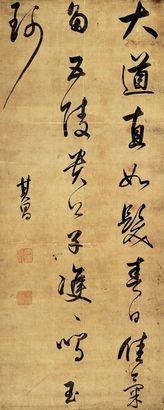 大道直如髮春日佳氣
多五陵貴公子雙〻鳴玉
珂
其昌